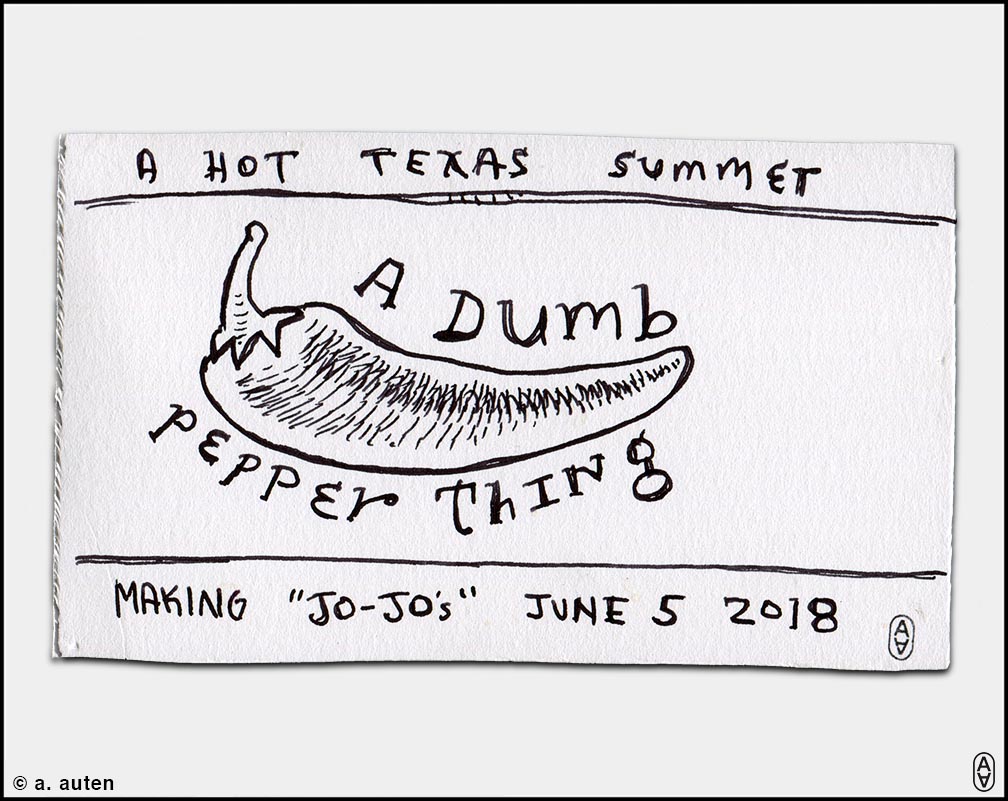 A HOT TEXAS SUMMER
A DUMB
PEPPER THING
MAKING "JO-JO's" JUNE 5 2018
AA
© a. auten
AA